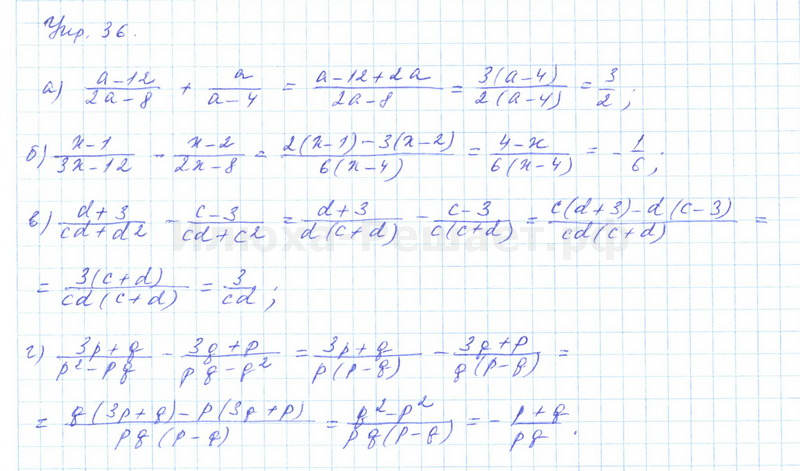 Упр. 36.
а) \frac{a-12}{2a-8} + \frac{a}{a-4} = \frac{a-12+2a}{2a-8} = \frac{3(a-4)}{2(a-4)} = \frac{3}{2};
б) \frac{x-1}{3x-12} - \frac{x-2}{2x-8} = \frac{2(x-1)-3(x-2)}{6(x-4)} = \frac{4-x}{6(x-4)} = -\frac{1}{6};
в) \frac{d+3}{cd+d2} - \frac{c-3}{cd+c2} = \frac{d+3}{d(c+d)} - \frac{c-3}{c(c+d)} = \frac{c(d+3)-d(c-3)}{cd(c+d)} =
= \frac{3(c+d)}{cd(c+d)} = \frac{3}{cd};
г) \frac{3p+q}{p^2-pq} - \frac{3q+p}{pq-q^2} = \frac{3p+q}{p(p-q)} - \frac{3q+p}{q(p-q)} =
= \frac{q(3p+q)-p(3q+p)}{pq(p-q)} = \frac{q^2-p^2}{pq(p-q)} = -\frac{p+q}{pq}.